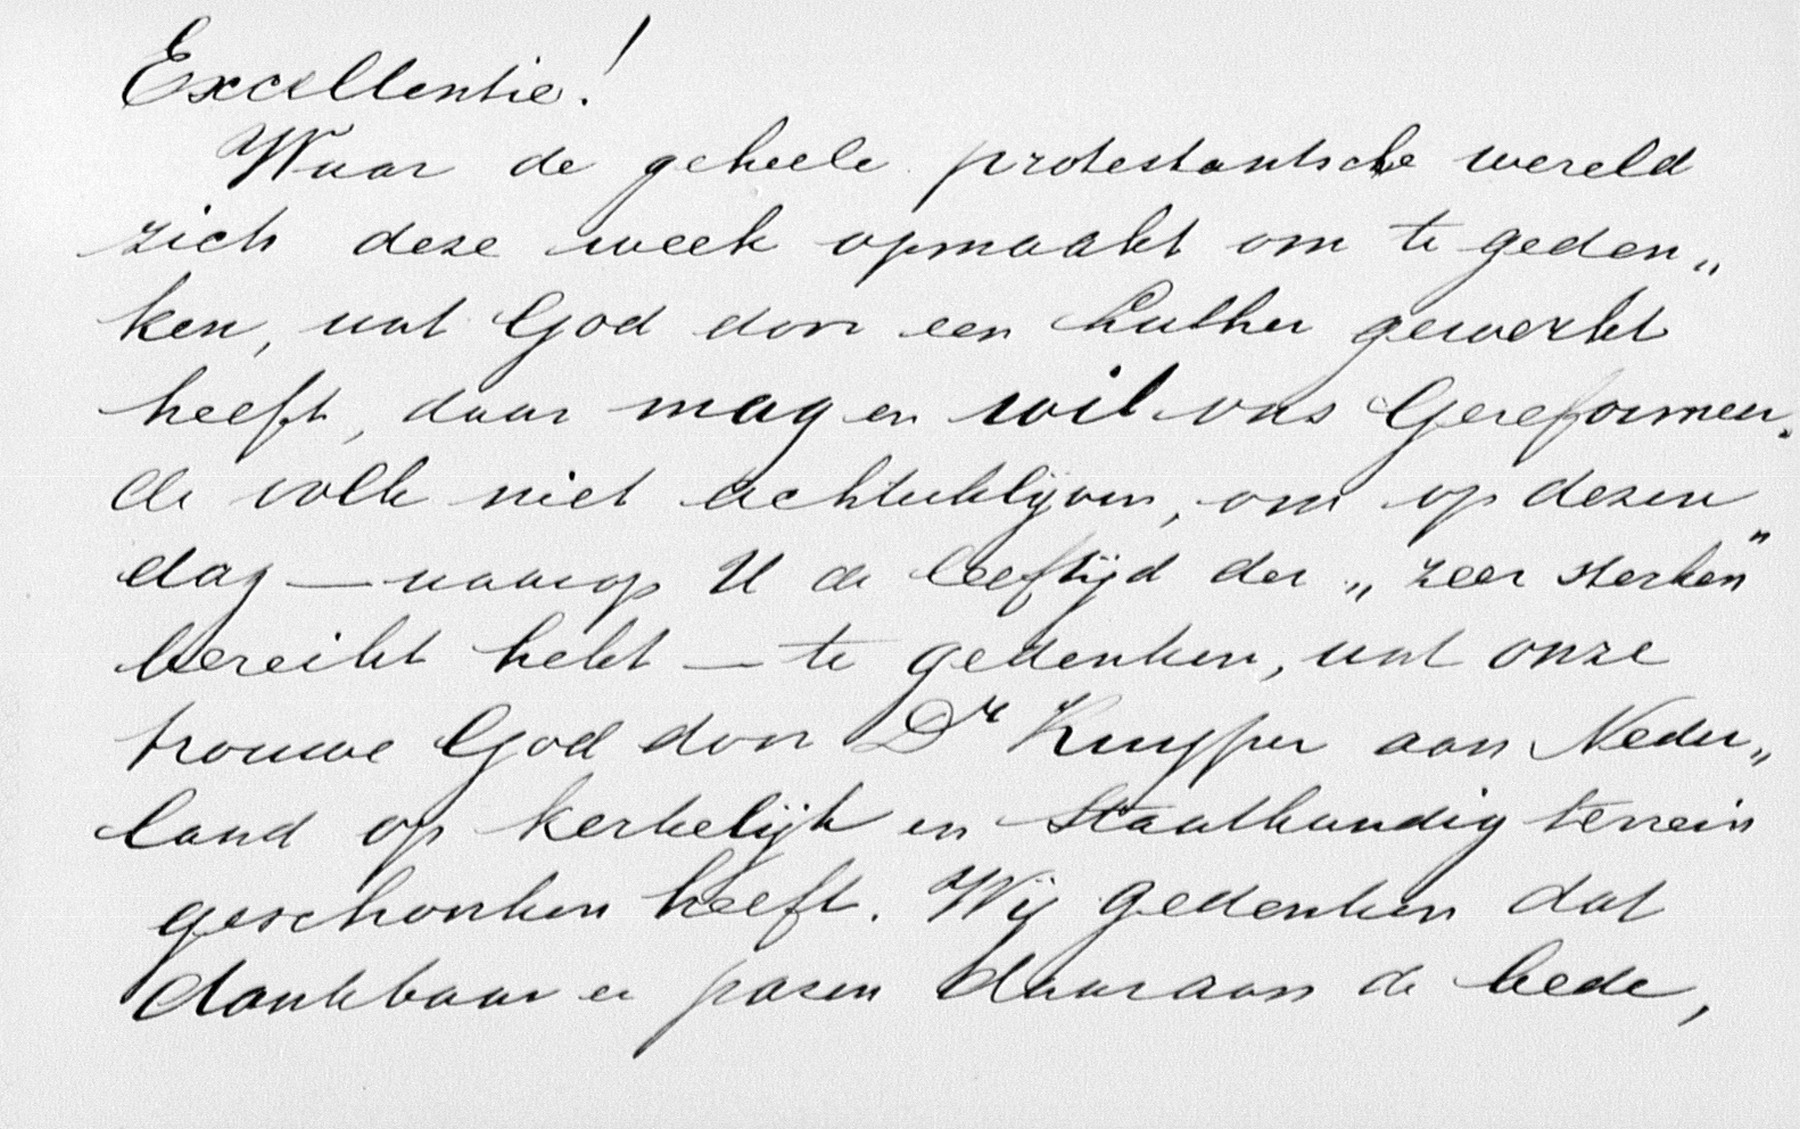 Excellentie!
Waar de geheele protestantsche wereld
zich deze week opmaakt om te geden„
ken, wat God door een Luther gewerkt
heeft, daar mag en wil ons Gereformeer„
de volk niet achterblijven, om op dezen
dag — waarop U de leeftijd der „zeer sterken”
bereikt hebt — te gedenken, wat onze
trouwe God door Dr Kuyper aan Neder„
land op kerkelijk en staatkundig terrein
geschonken heeft. Wij gedenken dat
dankbaar en paren daaraan de bede,